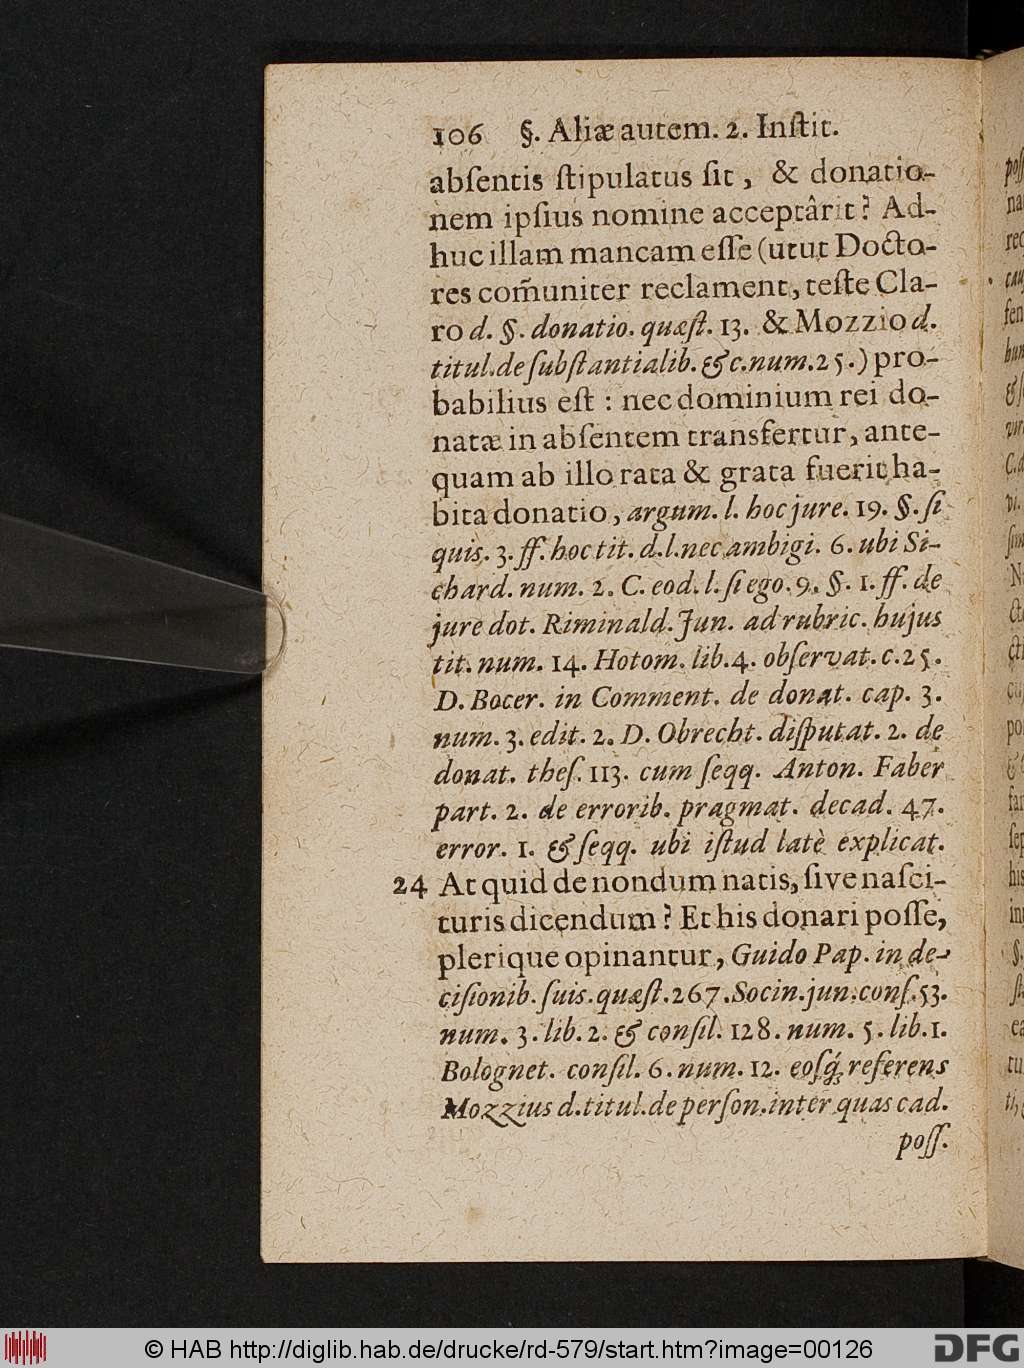 106 §. Aliæ autem. 2. Inſtit.
abſentis ſtipulatus ſit, & donatio-
nem ipſius nomine acceptârit? Ad-
huc illam mancam eſſe (utut Docto-
res com̃uniter reclament, teſte Cla-
ro d. §. donatio. quæſt. 13. & Mozzio d.
titul. de ſubſtantialib. &c. num. 25.) pro-
babilius eſt : nec dominium rei do-
natæ in abſentem transfertur, ante-
quam ab illo rata & grata fuerit ha-
bita donatio, argum. l. hoc jure. 19. §. ſi
quis. 3. ff. hoc tit. d. l. nec ambigi. 6. ubi Si-
chard. num. 2. C. eod. l. ſi ego. 9. §. 1. ff. de
jure dot. Riminald. Jun. ad rubric. hujus
tit. num. 14. Hotom. lib. 4. obſervat. c. 25.
D. Bocer. in Comment. de donat. cap. 3.
num. 3. edit. 2. D. Obrecht. diſputat. 2. de
donat. theſ. 113. cum ſeqq. Anton. Faber
part. 2. de errorib. pragmat. decad. 47.
error. 1. & ſeqq. ubi iſtud latè explicat.
24 At quid de nondum natis, ſive naſci-
turis dicendum? Et his donari poſſe,
plerique opinantur, Guido Pap. in de-
ciſionib. ſuis. quæſt. 267. Socin. jun. conſ. 53.
num. 3. lib. 2. & conſil. 128. num. 5. lib. 1.
Bolognet. conſil. 6. num. 12. eoſq́; referens
Mozzius d. titul. de perſon. inter quas cad.
poſſ.
© HAB http://diglib.hab.de/drucke/rd-579/start.htm?image=00126
DFG